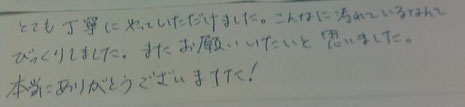 とても丁寧にやっていただけました。こんなに汚れているなんて
びっくりしました。またお願いいたいと思いました。
本当にありがとうございますた!